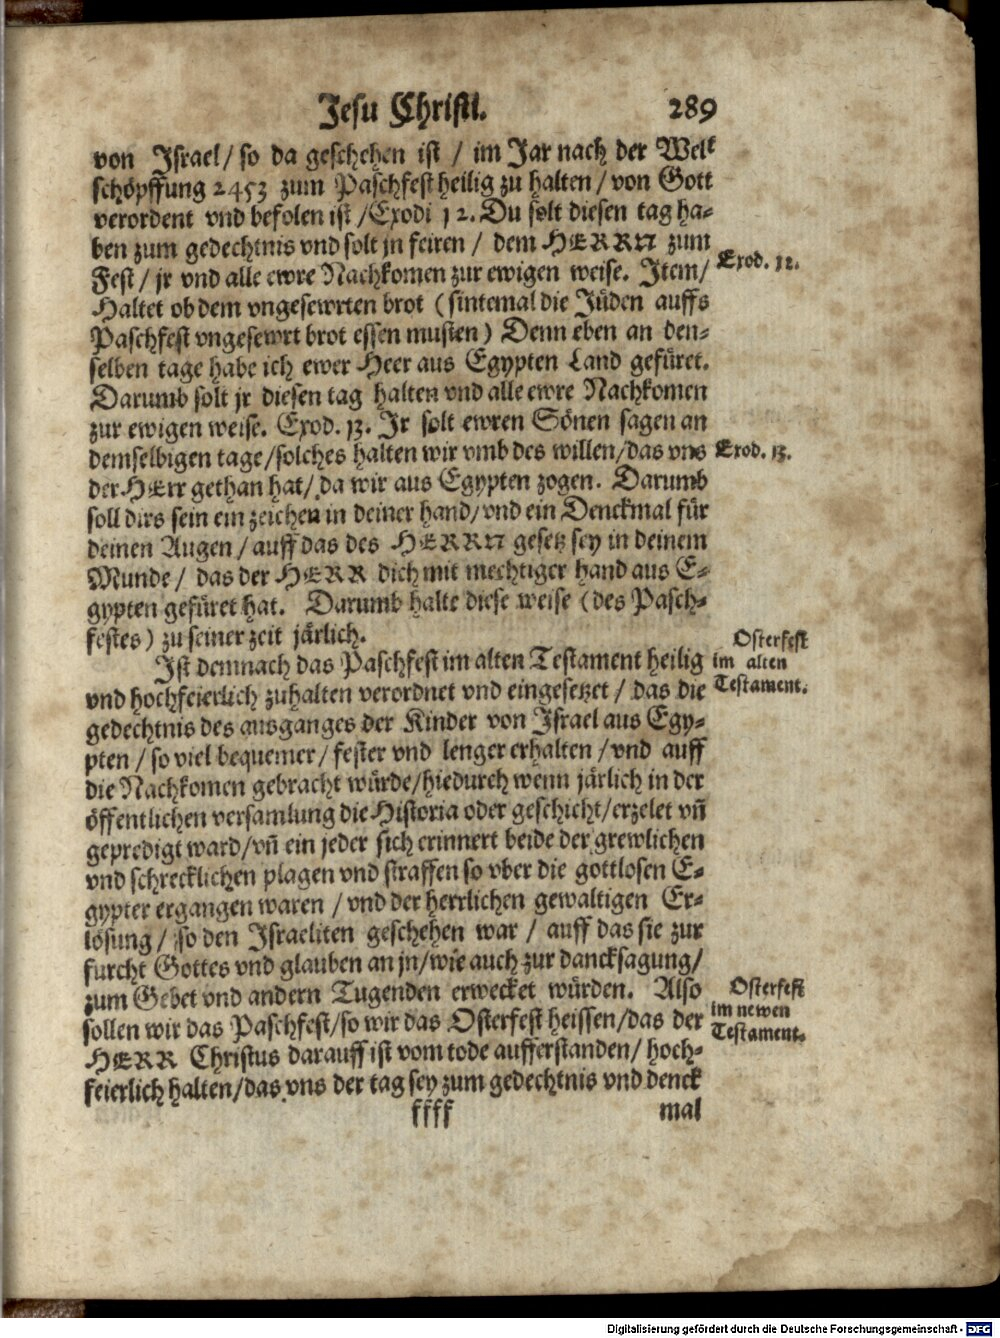 Jesu Christi. 289
von Israel / so da geschehen ist / im Jar nach der Welt
schöpffung 2453 zum Paschfest heilig zu halten / von Gott
verordent vnd befolen ist / Exodi 12. Du solt diesen tag ha⸗
ben zum gedechtnis vnd solt jn feiren / dem HERRN zum
Exod. 12.
Fest / jr vnd alle ewre Nachkomen zur ewigen weise. Item /
Haltet ob dem vngesewrten brot (sintemal die Jüden auffs
Paschfest vngesewrt brot essen musten) Denn eben an den⸗
selben tage habe ich ewer Heer aus Egypten Land gefüret.
Darumb solt jr diesen tag halten vnd alle ewre Nachkomen
zur ewigen weise. Exod. 13. Ir solt ewren Sönen sagen an
demselbigen tage / solches halten wir vmb des willen / das vns
Exod. 13.
der HErr gethan hat / da wir aus Egypten zogen. Darumb
soll dirs sein ein zeichen in deiner hand / vnd ein Denckmal für
deinen Augen / auff das des HERRN gesetz sey in deinem
Munde / das der HERR dich mit mechtiger hand aus E⸗
gypten gefüret hat. Darumb halte diese weise (des Pasch⸗
festes) zu seiner zeit järlich.
Osterfest
im alten
Testament.
Ist demnach das Paschfest im alten Testament heilig
vnd hochfeierlich zuhalten verordnet vnd eingesetzet / das die
gedechtnis des ausganges der Kinder von Israel aus Egy⸗
pten / so viel bequemer / fester vnd lenger erhalten / vnd auff
die Nachkomen gebracht würde / hiedurch wenn järlich in der
öffentlichen versamlung die Historia oder geschicht / erzelet vñ
gepredigt ward / vñ ein jeder sich erinnert beide der grewlichen
vnd schrecklichen plagen vnd straffen so vber die gottlosen E⸗
gypter ergangen waren / vnd der herrlichen gewaltigen Er⸗
lösung / so den Israeliten geschehen war / auff das sie zur
furcht Gottes vnd glauben an jn / wie auch zur dancksagung /
zum Gebet vnd andern Tugenden erwecket würden. Also
Osterfest
im newen
Testament.
sollen wir das Paschfest / so wir das Osterfest heissen / das der
HERR Christus darauff ist vom tode aufferstanden / hoch⸗
feierlich halten / das vns der tag sey zum gedechtnis vnd denck
ffff mal
Digitalisierung gefördert durch die Deutsche Forschungsgemeinschaft - DFG